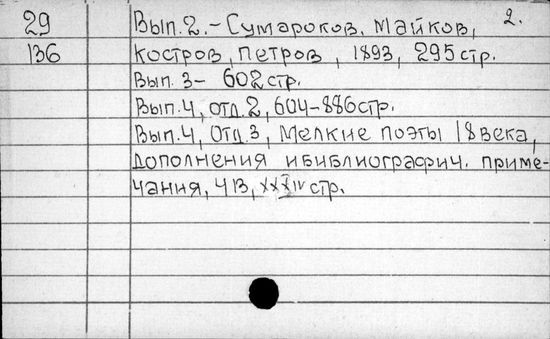 29 Вып.2.- Сумароков, Майков, 2.
136 Костров, Петров, 1893, 295 стр.
Вып. 3- 602 стр.
Вып.4, отд.2, 604-886 стр.
Вып.4, Отд.3, Мелкие поэты 18 века,
дополнения и библиографич. приме-
чания, 413, XXXIV стр.